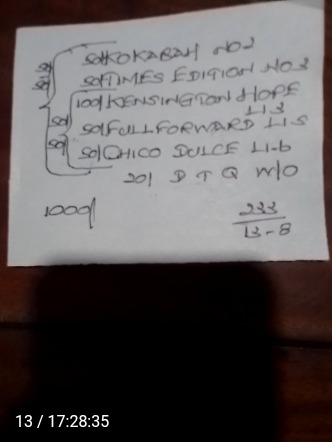 50/ KOKABAH NO2
50/ TIMES EDITION NO.3
100/ KENSINGTON HOPE
L1 3
50/ FULLFORWARD L1-5
50/ CHICO DULCE L1-6
20/ D T Q W/O
1000/
233
13-8
50
50
50
50
13 / 17:28:35